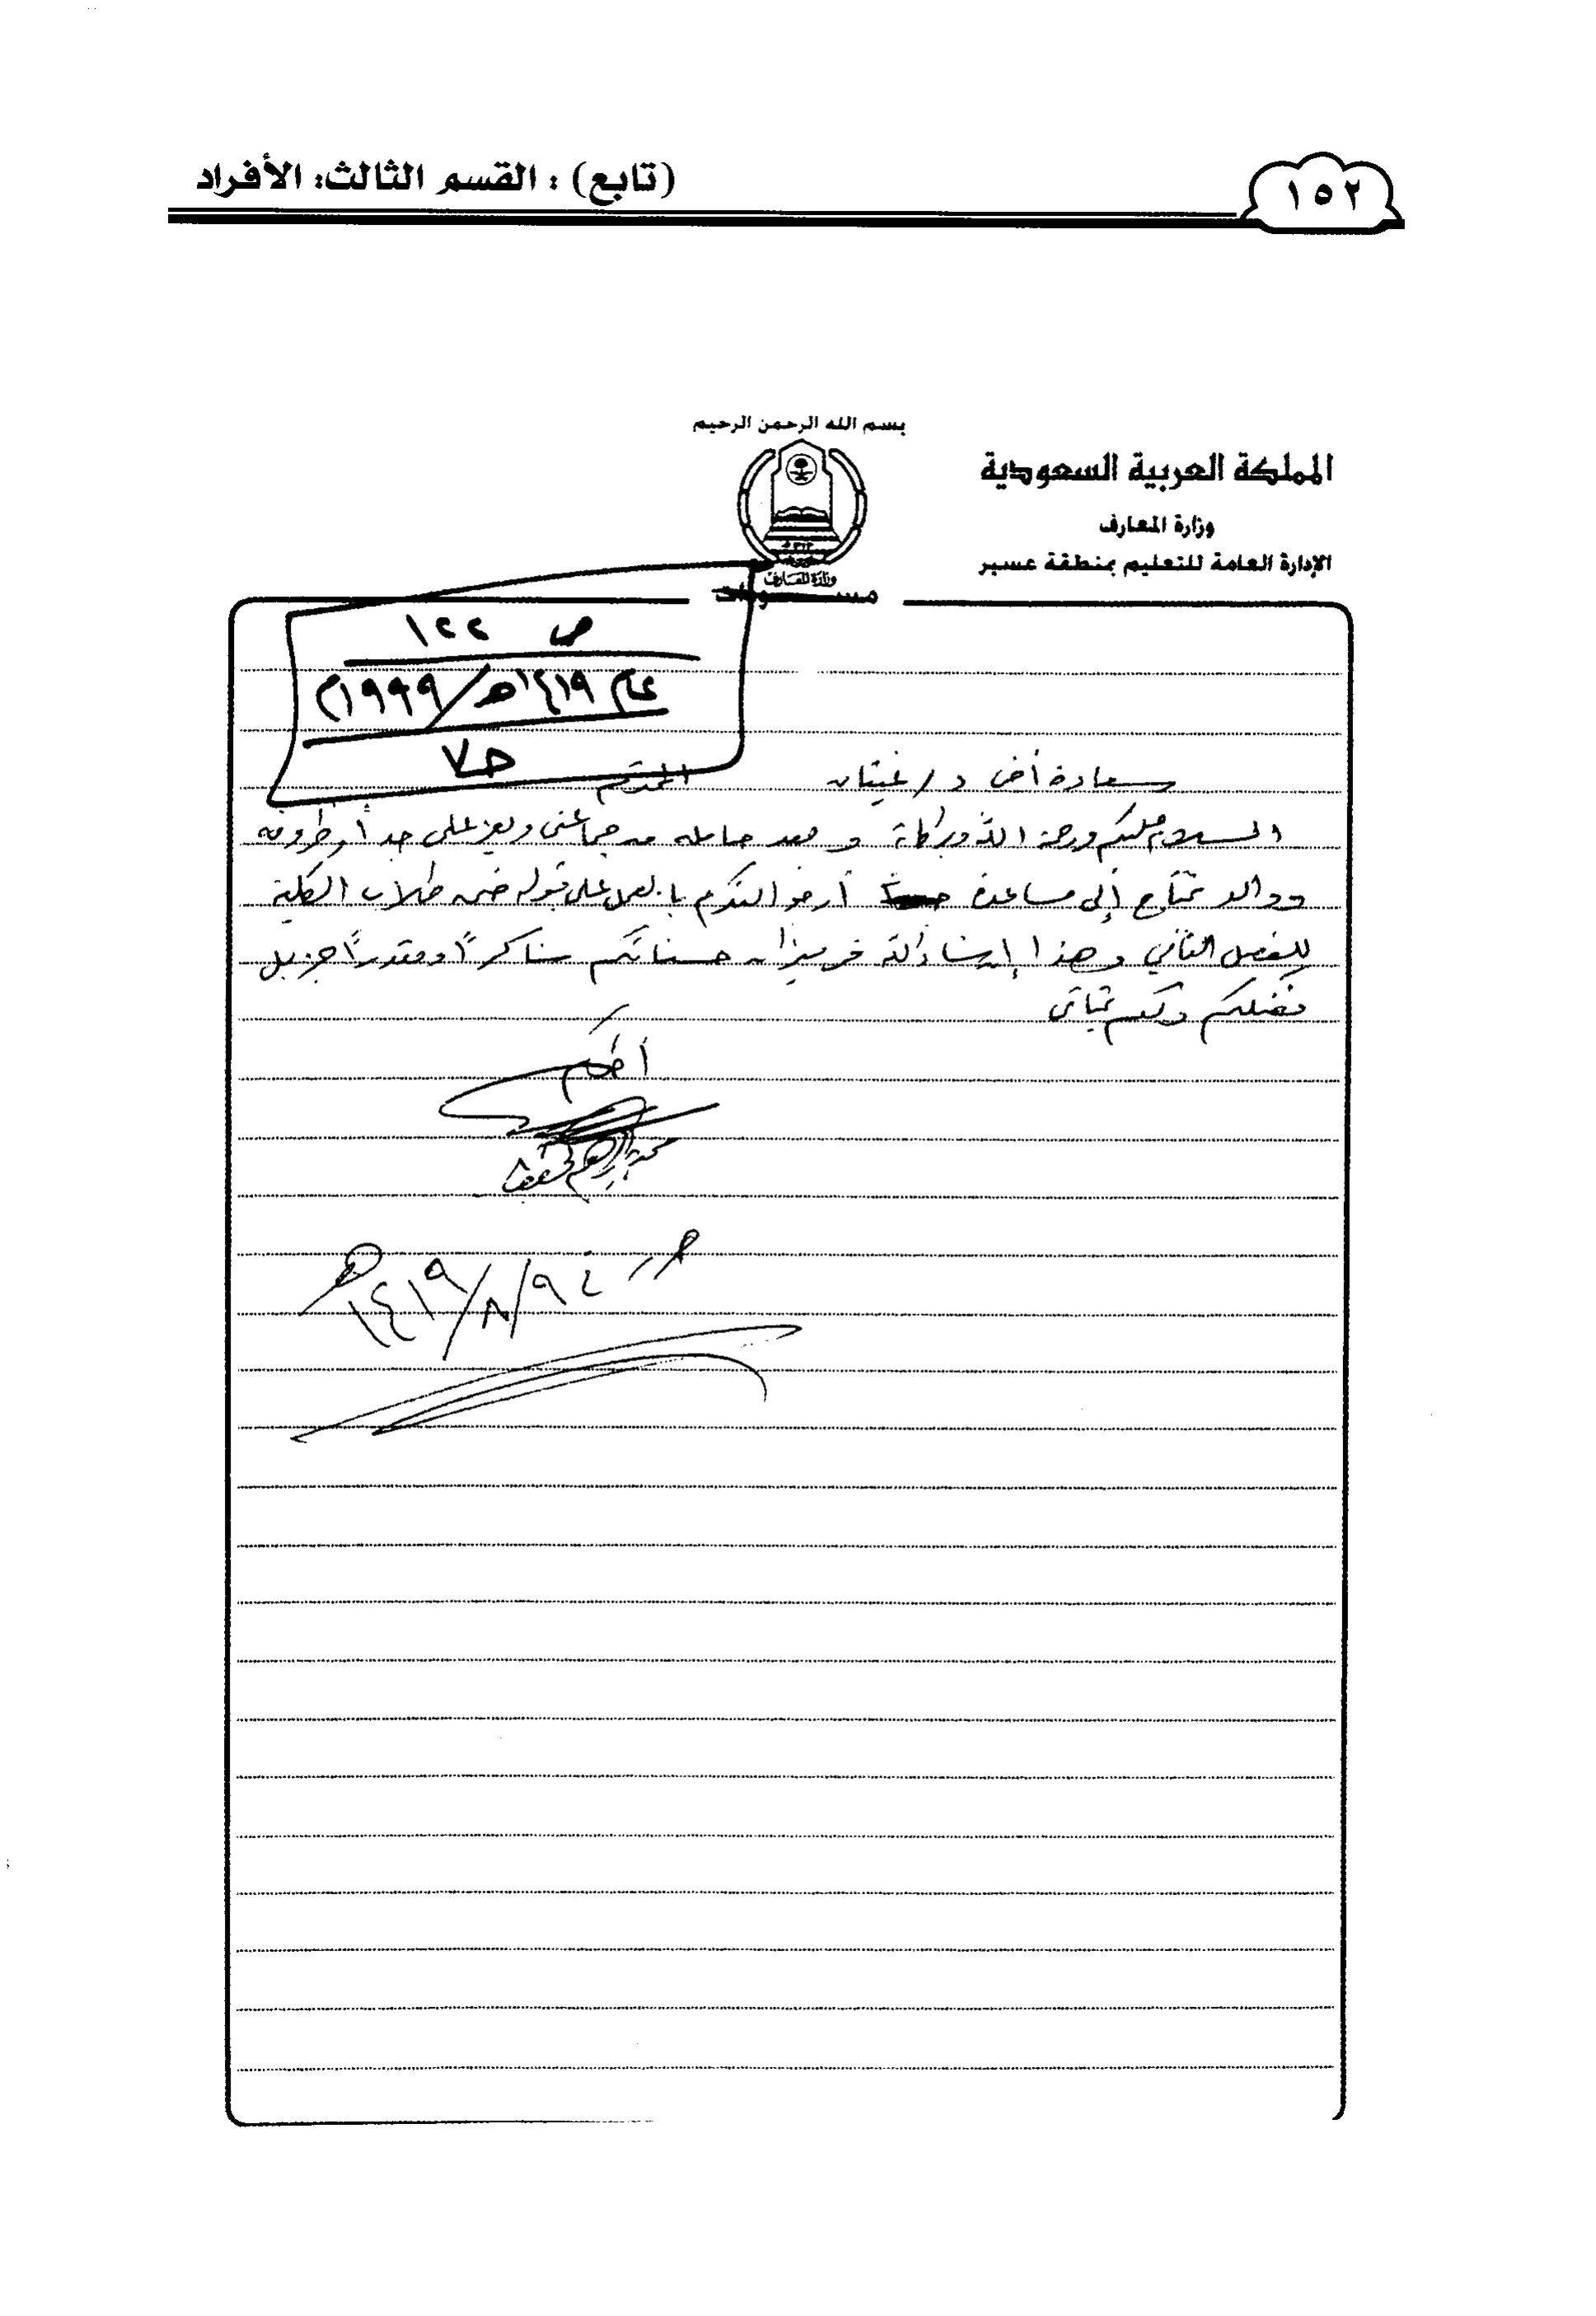 (تابع) : القسم الثالث: الأفراد
١٥٢
بسم الله الرحمن الرحيم
المملكة العربية السعودية
وزارة المعارف
الإدارة العامة للتعليم بمنطقة عسير
وزارة المعارف
ص ١٢٢
عام ١٤١٩هـ/١٩٩٩م
ح٧
سعادة أخي د/ غيثان المحترم
السلام عليكم ورحمة الله وبركاته وبعد حامله من جماعتي ويعز علي جداً وظروفه
ووالده تحتاج إلى مساعدة أرجو التكرم بالعمل على قبوله ضمن طلاب الكلية
للفصل الثاني وهذا إن شاء الله في ميزان حسناتكم شاكراً ومقدراً جزيل
فضلكم ولكم تحياتي
أخوكم
محمد إبراهيم
حرر في ٩/٨/١٤١٩هـ